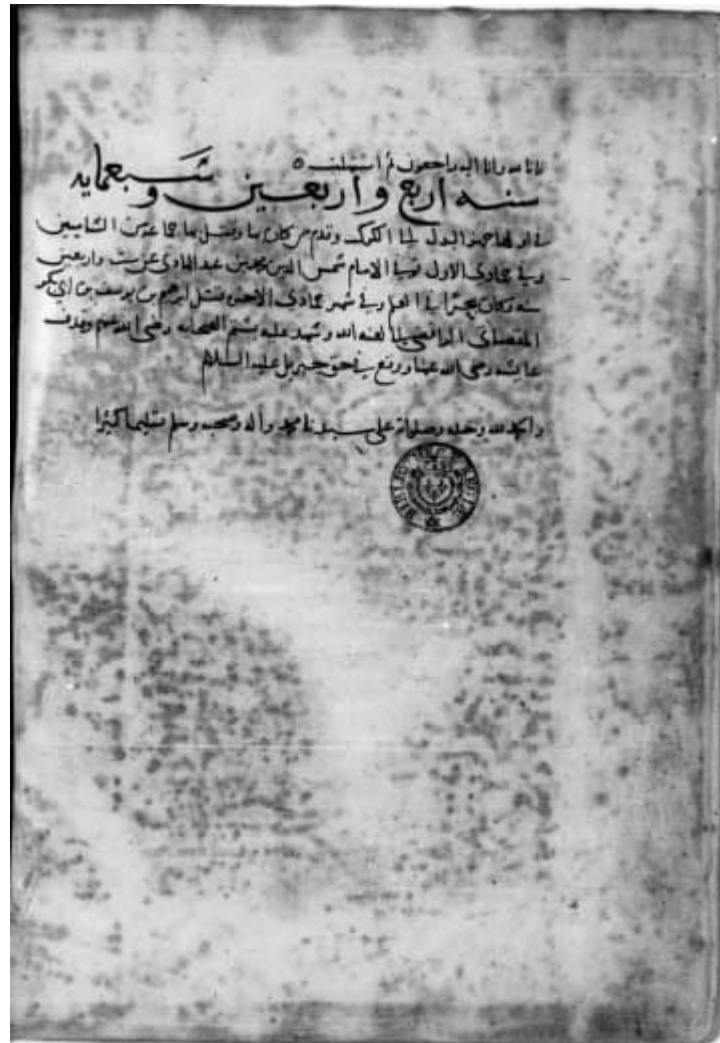 فانا لله وانا اليه راجعون ثم استهلت
سنه اربع واربعين وسبعمايه
في اولها جهز الدول الى الكرك وقدم من كان بها وقتل بها جماعة من الشاميين
وفي جمادى الاول توفي الامام شمس الدين محمد بن عبد الهادي عن ست واربعين
سنه وكان بحرًا في العلم وفي شهر جمادى الاخره قتل ابرهيم بن يوسف بن ابي بكر
المقصاتي الرافضي لعنه الله وشهد عليه بشتم الصحابه رضي الله عنهم وقذف
عايشه رضي الله عنها ووقع في حق جبريل عليه السلام
والحمد لله وحده وصلواته على سيدنا محمد وآله وصحبه وسلم تسليما كثيرا